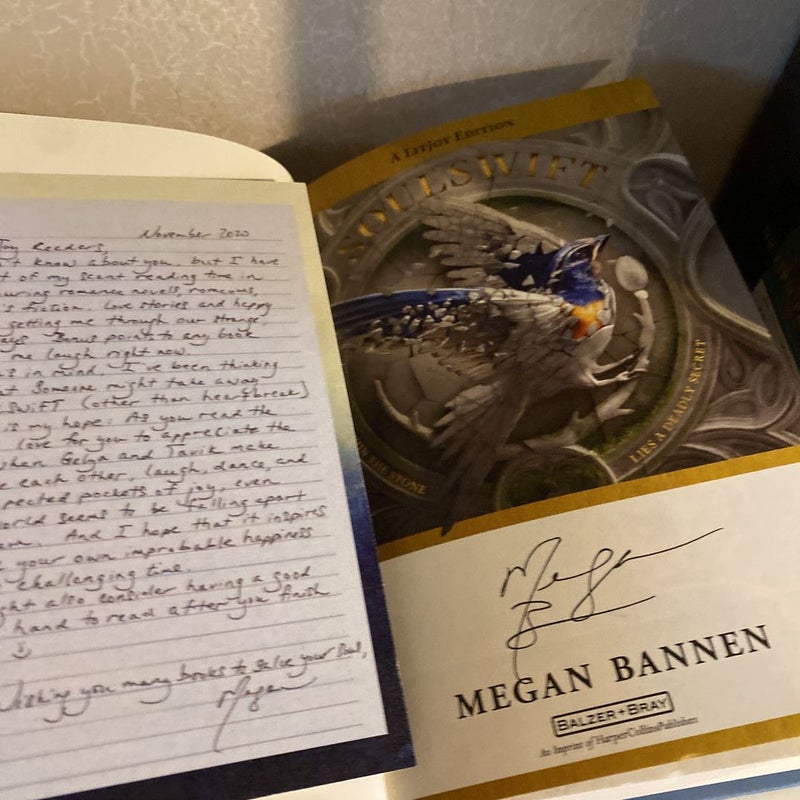 November 2020
Joy Readers,
't know about you, but I have
t of my scant reading time in
ouring romance novels, romcoms,
's fiction. Love stories and happy
getting me through our strange
ays. Bonus points to any book
me laugh right now.
is in mind, I've been thinking
at someone might take away
SWIFT (other than heartbreak)
is my hope: As you read the
love for you to appreciate the
when Gelya and Tavik make
e each other, laugh, dance, and
pected pockets of joy, even
orld seems to be falling apart
em. And I hope that it inspires
your own improbable happiness
challenging time.
ght also consider having a good
hand to read after you finish
:)
Wishing you many books to salve your soul,
Megan
A LITJOY EDITION
SOULSWIFT
IN THE STONE
LIES A DEADLY SECRET
Megan
B
MEGAN BANNEN
BALZER + BRAY
An Imprint of HarperCollinsPublishers